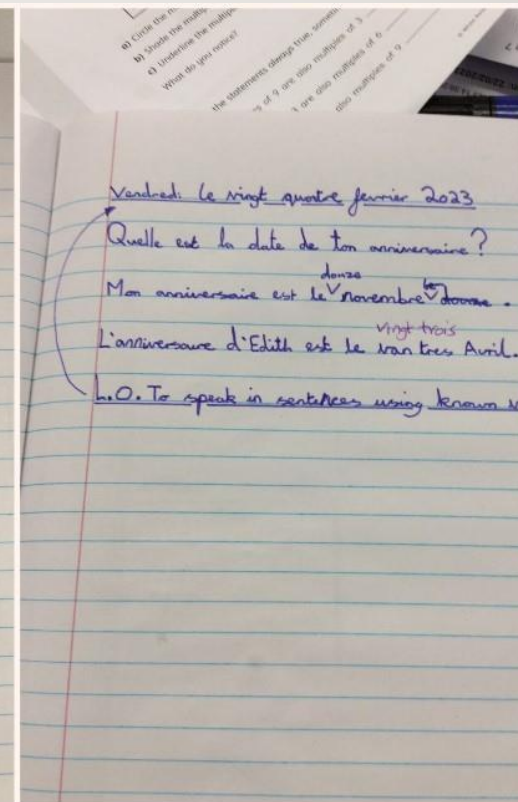 a) Circle the
b) Shade the multip
c) Underline the multiple
What do you notice?
the statements always true, someti
of 9 are also multiples of 3
are also multiples of 6
also multiples of 9
Vendredi le vingt quatre fevrier 2023
Quelle est la date de ton anniversaire?
douze
Mon anniversaire est le novembre le douze.
vingt trois
L'anniversaire d'Edith est le van tres Avril.
L.O. To speak in sentences using known